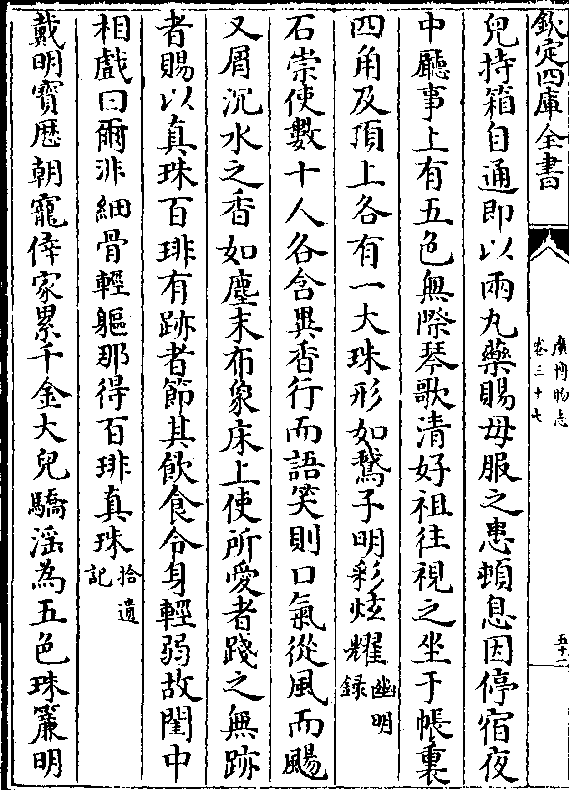 欽定四庫全書
廣博物志
卷三十七
五十二
兒持箱自通即以兩丸藥賜母服之患頓息因停宿夜
中廳事上有五色無際琴歌清好祖往視之坐于帳裏
四角及頂上各有一大珠形如鵞子明彩炫耀幽明錄
石崇使數十人各含異香行而語笑則口氣從風而颺
又屑沉水之香如塵末布象床上使所愛者踐之無跡
者賜以真珠百琲有跡者節其飲食令身輕弱故閨中
相戲曰爾非細骨輕軀那得百琲真珠拾遺記
戴明寶歴朝寵倖家累千金大兒驕淫為五色珠簾明